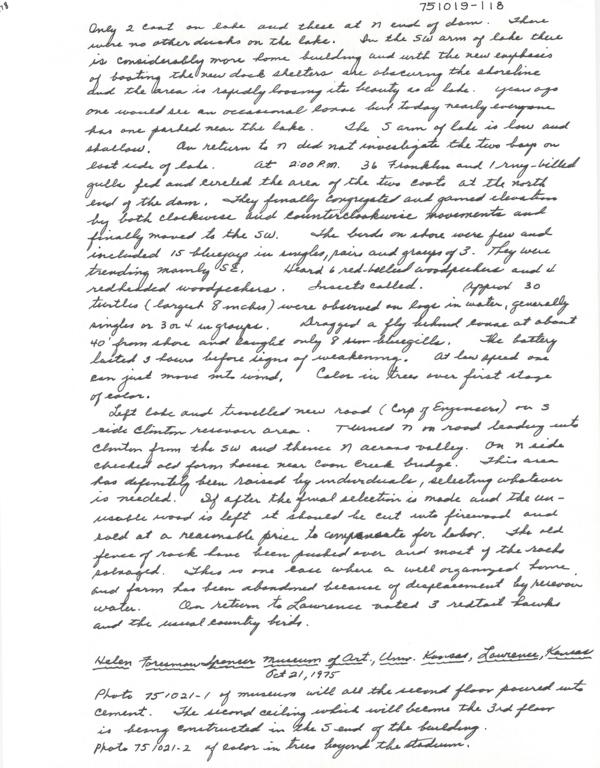 751019-118
Only 2 coot on lake and these at N end of dam. There
were no other ducks on the lake. In the SW arm of lake there
is considerably more home building and with the new emphasis
of boating the new dock shelters are obscuring the shoreline
and the area is rapidly loosing its beauty as a lake. Years ago
one would see an occasional canoe but today nearly everyone
has one parked near the lake. The S arm of lake is low and
shallow. On return to N did not investigate the two bays on
east side of lake. At 2:00 P.M. 36 Franklin and 1 ring-billed
gulls fed and circled the area of the two coots at the north
end of the dam. They finally congregated and gained elevation
by both clockwise and counterclockwise movements and
finally moved to the SW. The birds on shore were few and
included 15 bluejays in singles, pairs and groups of 3. They were
trending mainly SE. Heard 6 red-bellied woodpeckers and 4
redheaded woodpeckers. Insects called. Approx 30
turtles (largest 8 inches) were observed on logs in water, generally
singles or 3 or 4 in groups. Dragged a fly behind canoe at about
40' from shore and caught only 8 sun bluegills. The battery
lasted 3 hours before signs of weakening. At low speed one
can just move into wind. Color in trees over first stage
of color.
Left lake and travelled new road (Corp of Engineers) on S
side Clinton reservoir area. Turned N on road leading into
Clinton from the SW and thence N across valley. On N side
checked old farm house near Coon Creek bridge. This area
has definitely been raised by individuals, selecting whatever
is needed. If after the final selection is made and the un-
usable wood is left it should be cut into firewood and
sold at a reasonable price to compensate for labor. The old
fence of rock have been pushed over and most of the rocks
salvaged. This is one case where a well organized home
and farm has been abandoned because of displacement by reservoir
water. On return to Lawrence noted 3 redtail hawks
and the usual country birds.
Helen Foresman Spencer Museum of Art, Univ. Kansas, Lawrence, Kansas
Oct 21, 1975
Photo 751021-1 of museum will all the second floor poured into
cement. The second ceiling which will become the 3rd floor
is being constructed in the S end of the building.
Photo 751021-2 of color in trees beyond the stadium.